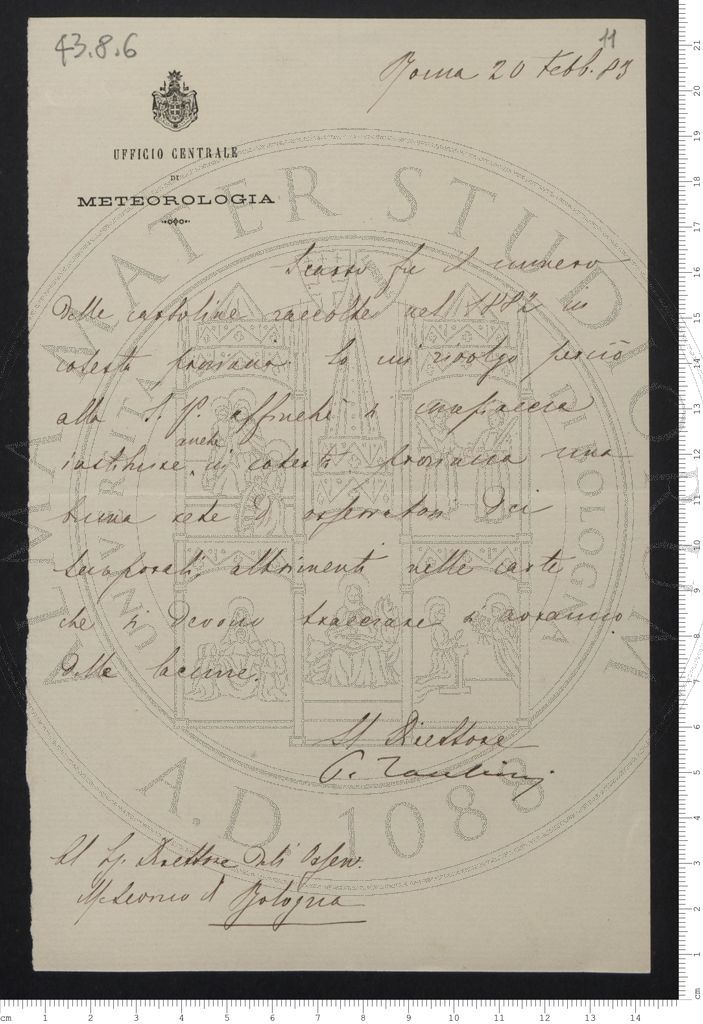 43.8.6
11
Roma 20 Febb. 83
UFFICIO CENTRALE
DI
METEOROLOGIA
Scarso fu il numero
delle cartoline raccolte nel 1882 in
cotesta provincia. Io mi rivolgo perciò
alla S. V. affinchè si compiaccia
anche
instituire in cotesta provincia una
buona rete di osservatori dei
temporali, altrimenti nelle carte
che si devono tracciare si avranno
delle lacune.
Il Direttore
P. Tacchini
Al Sg. Direttore dell' Osserv.
Meteorico di Bologna
ALMA MATER STUDIORUM
A.D. 1088